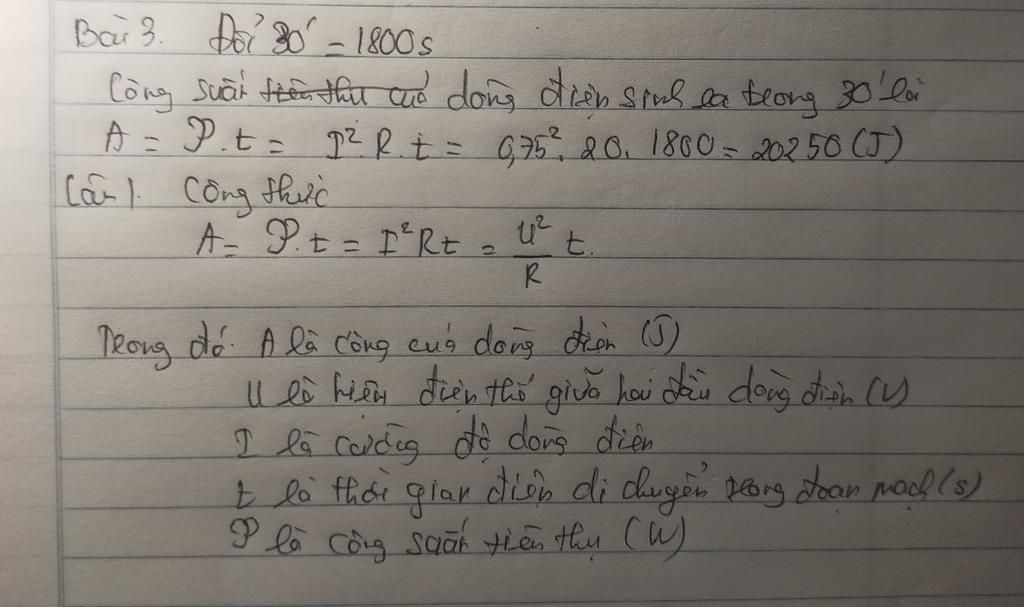 Bài 3. Đổi 30' = 1800s
Công suất tiêu thụ của dòng điện sinh ra trong 30' là
A = P.t = I².R.t = 0,75². 20. 1800 = 20250 (J)
Câu 1. Công thức
A = P.t = I²Rt = U²/R t.
Trong đó. A là công của dòng điện (J)
U là hiệu điện thế giữa hai đầu dòng điện (V)
I là cường độ dòng điện
t là thời gian điện di chuyển trong đoạn mạch (s)
P là công suất tiêu thụ (W)